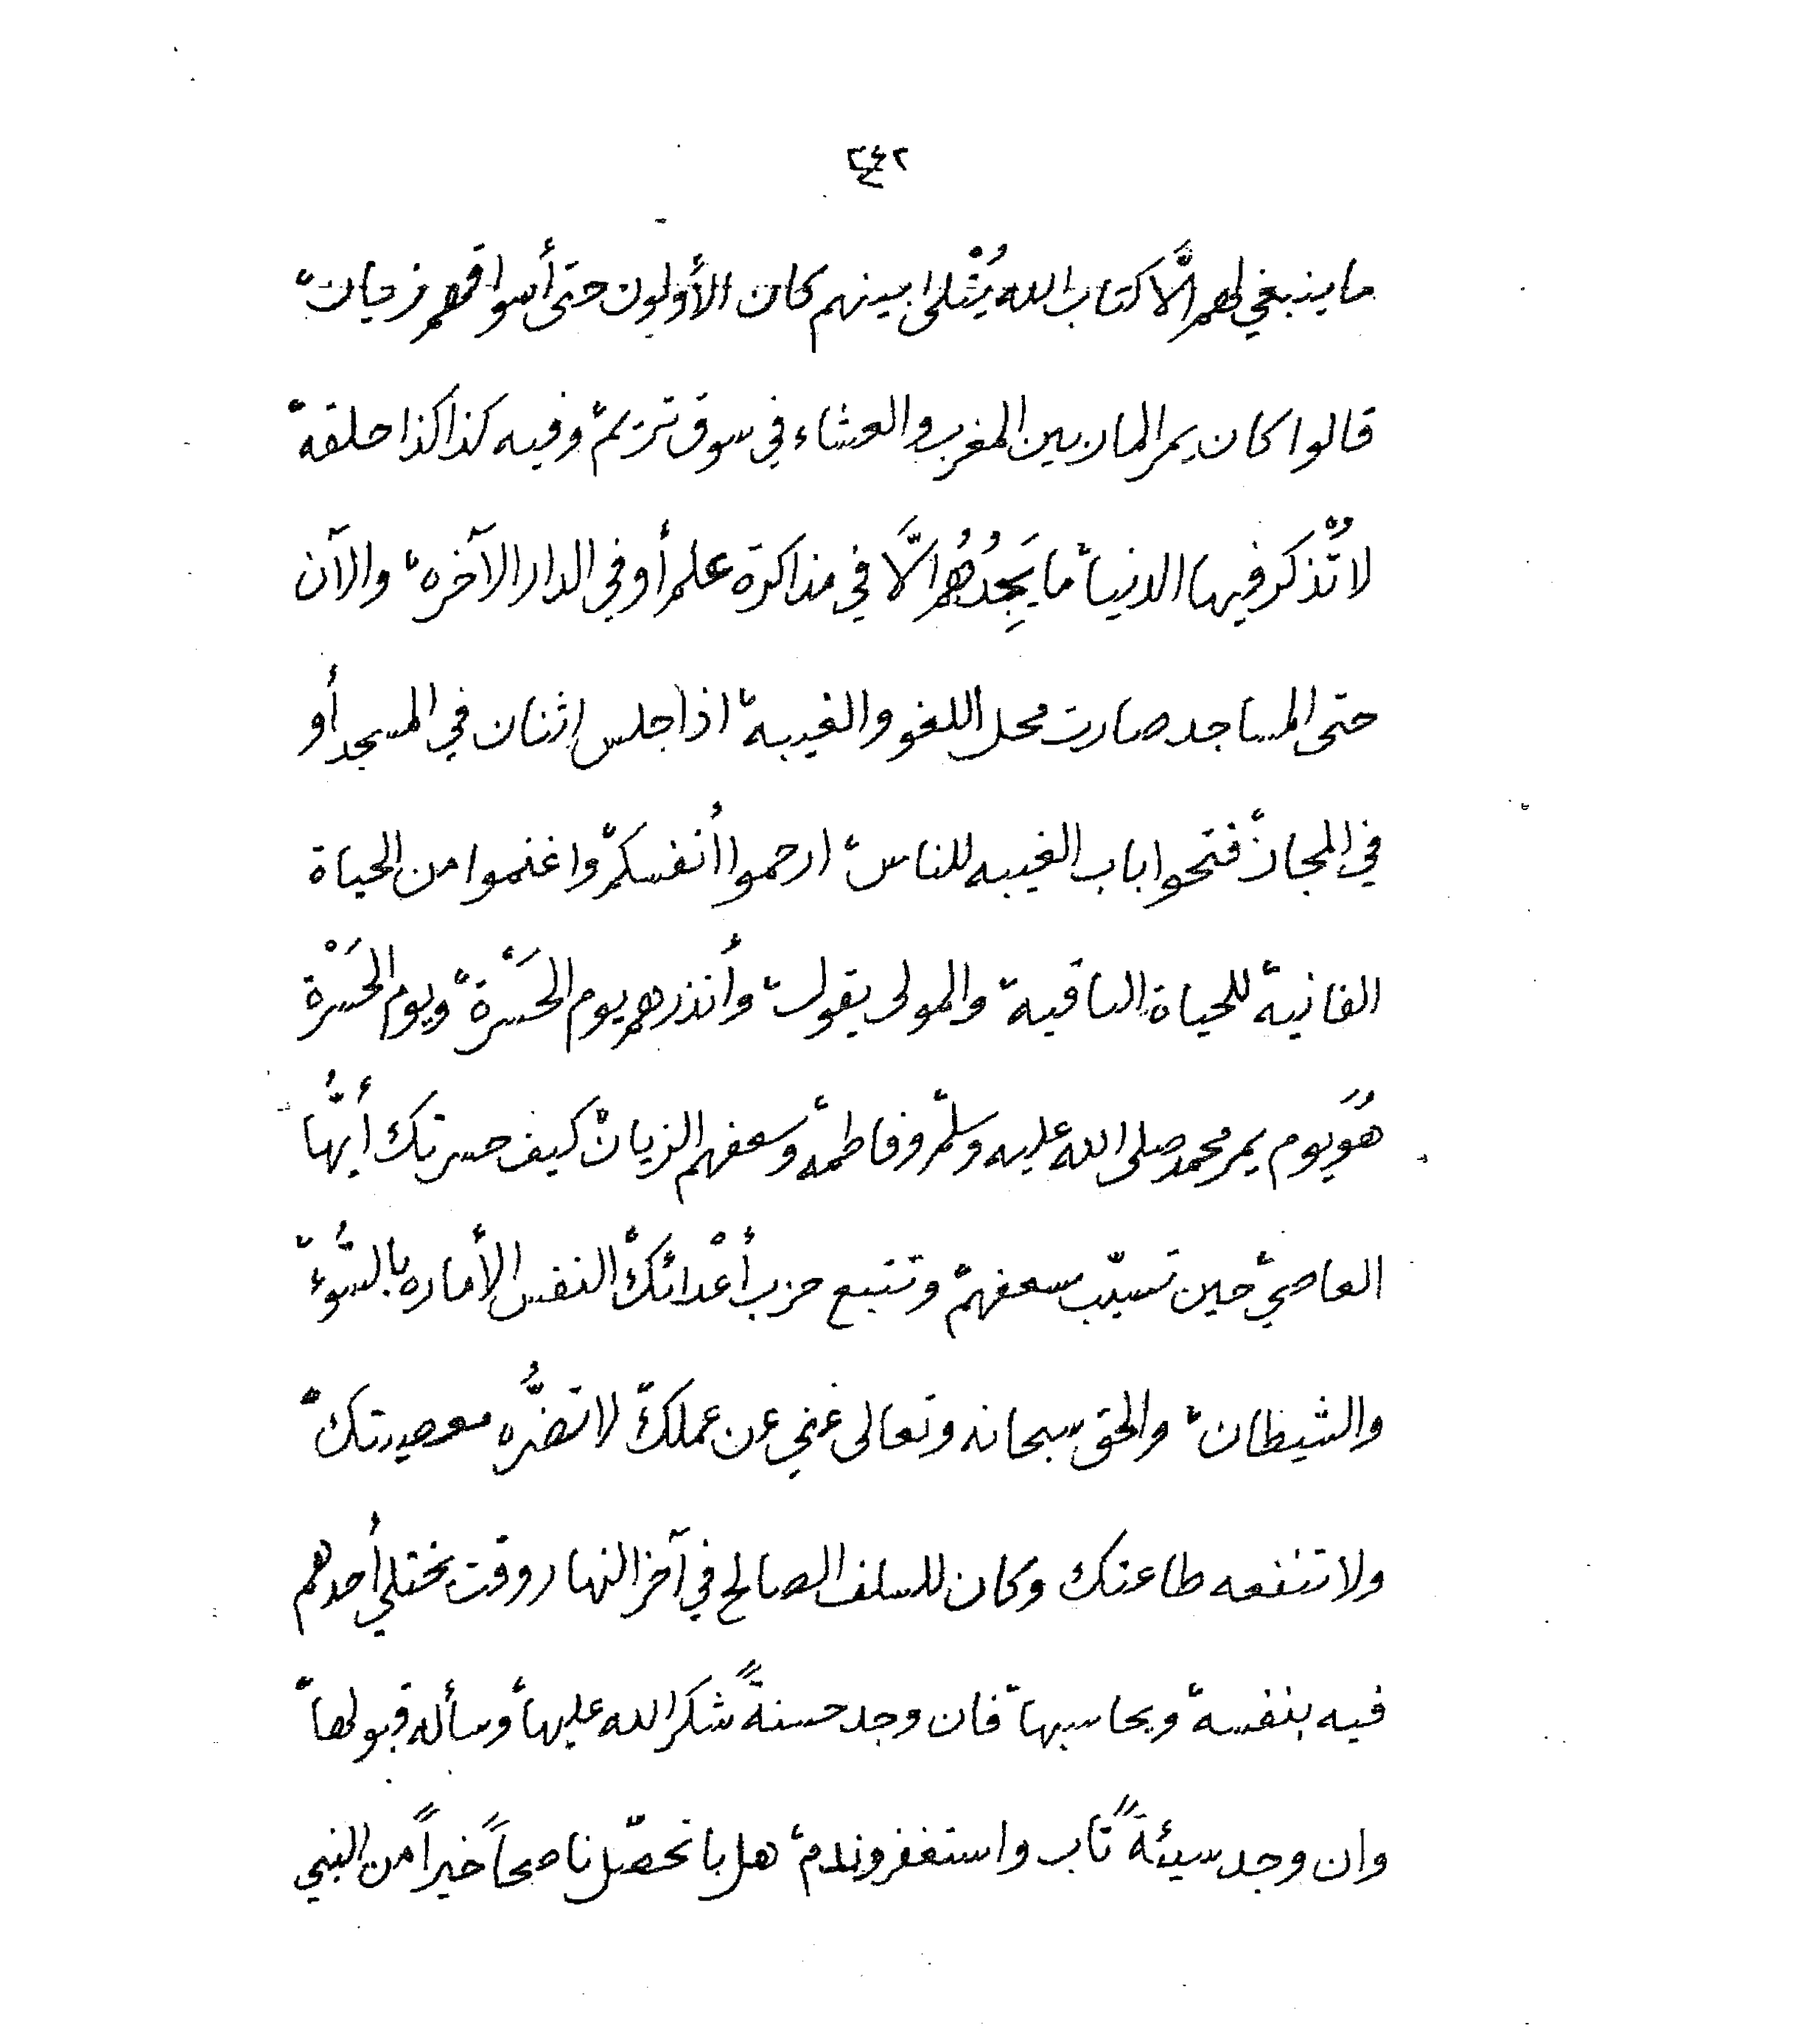 ٢٤٢
ما ينبغي لهم إلَّا كتاب الله يُتْلى بينهم كان الأولون حتى أسواقهم زيانْ،
قالوا كان يمر المار بين المغرب والعشاء في سوق تريم، وفيه كذا كذا حلقة،
لا تُذكر فيها الدنيا، ما يَجِدُهُم الَّا في مذاكرة علم أو في الدار الآخره، والآن
حتى المساجد صارت محل اللغو والغيبة، اذا جلس إثنان في المسجد أو
في المجاز، فتحوا باب الغيبه للناس، ارحموا أنفسكم، واغنموا من الحياة
الفانية، للحياة الباقية، والمولى يقول، وأنذرهم يوم الحَسْرة، ويوم الحَسْرة
هُوَ يوم يمر محمد صلى الله عليه وسلم، وفاطمه، وسعفهم الزيان، كيف حسرتك أيُّها
العاصي، حين تسيّب سعفهم، وتتبع حزب أعْدائك، النفس الأماره بالسُّوء،
والشيطان، والحق سبحانه وتعالى غني عن عملك، لا تضرُّه معصيتك،
ولا تنفعه طاعتك وكان للسلف الصالح في آخر النهار وقت يختلي أحدهم
فيه بنفسه، ويحاسبها، فان وجد حسنةً شكر الله عليها، وسأله قبولها،
وان وجد سيئةً تاب واستغفر وندم، هل با تحصّل ناصحاً خيراً من النبي